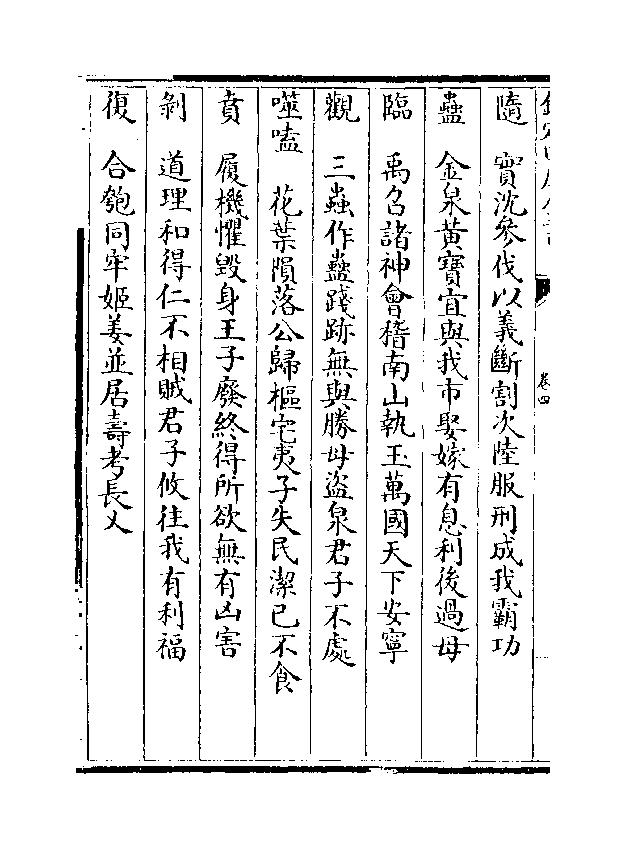 隨　實沈參伐以義斷割次陸服刑成我霸功
蠱　金泉黃寶宜與我市娶嫁有息利後過母
臨　禹召諸神會稽南山執玉萬國天下安寧
觀　三蟲作蠱踐跡無與勝母盜泉君子不處
噬嗑　花葉隕落公歸樞宅夷子失民潔己不食
賁　履機懼毀身王子廢終得所欲無有凶害
剝　道理和得仁不相賊君子攸往我有利福
復　合匏同牢姬姜並居壽考長乆
卷四